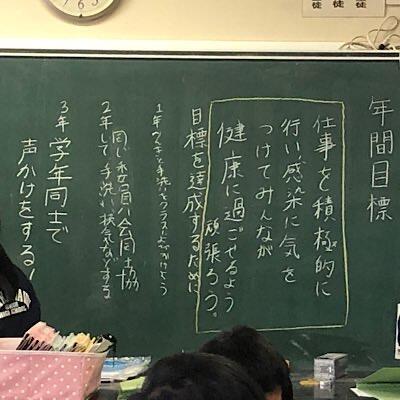 年間目標
仕事を積極的に
行い感染に気を
つけてみんなが
健康に過ごせるよう
頑張ろう。
目標を達成するために
1年 クラスによびかけよう
2年 同じ委員会同士協
して手洗い、換気などする
3年 学年同士で
声かけをする!